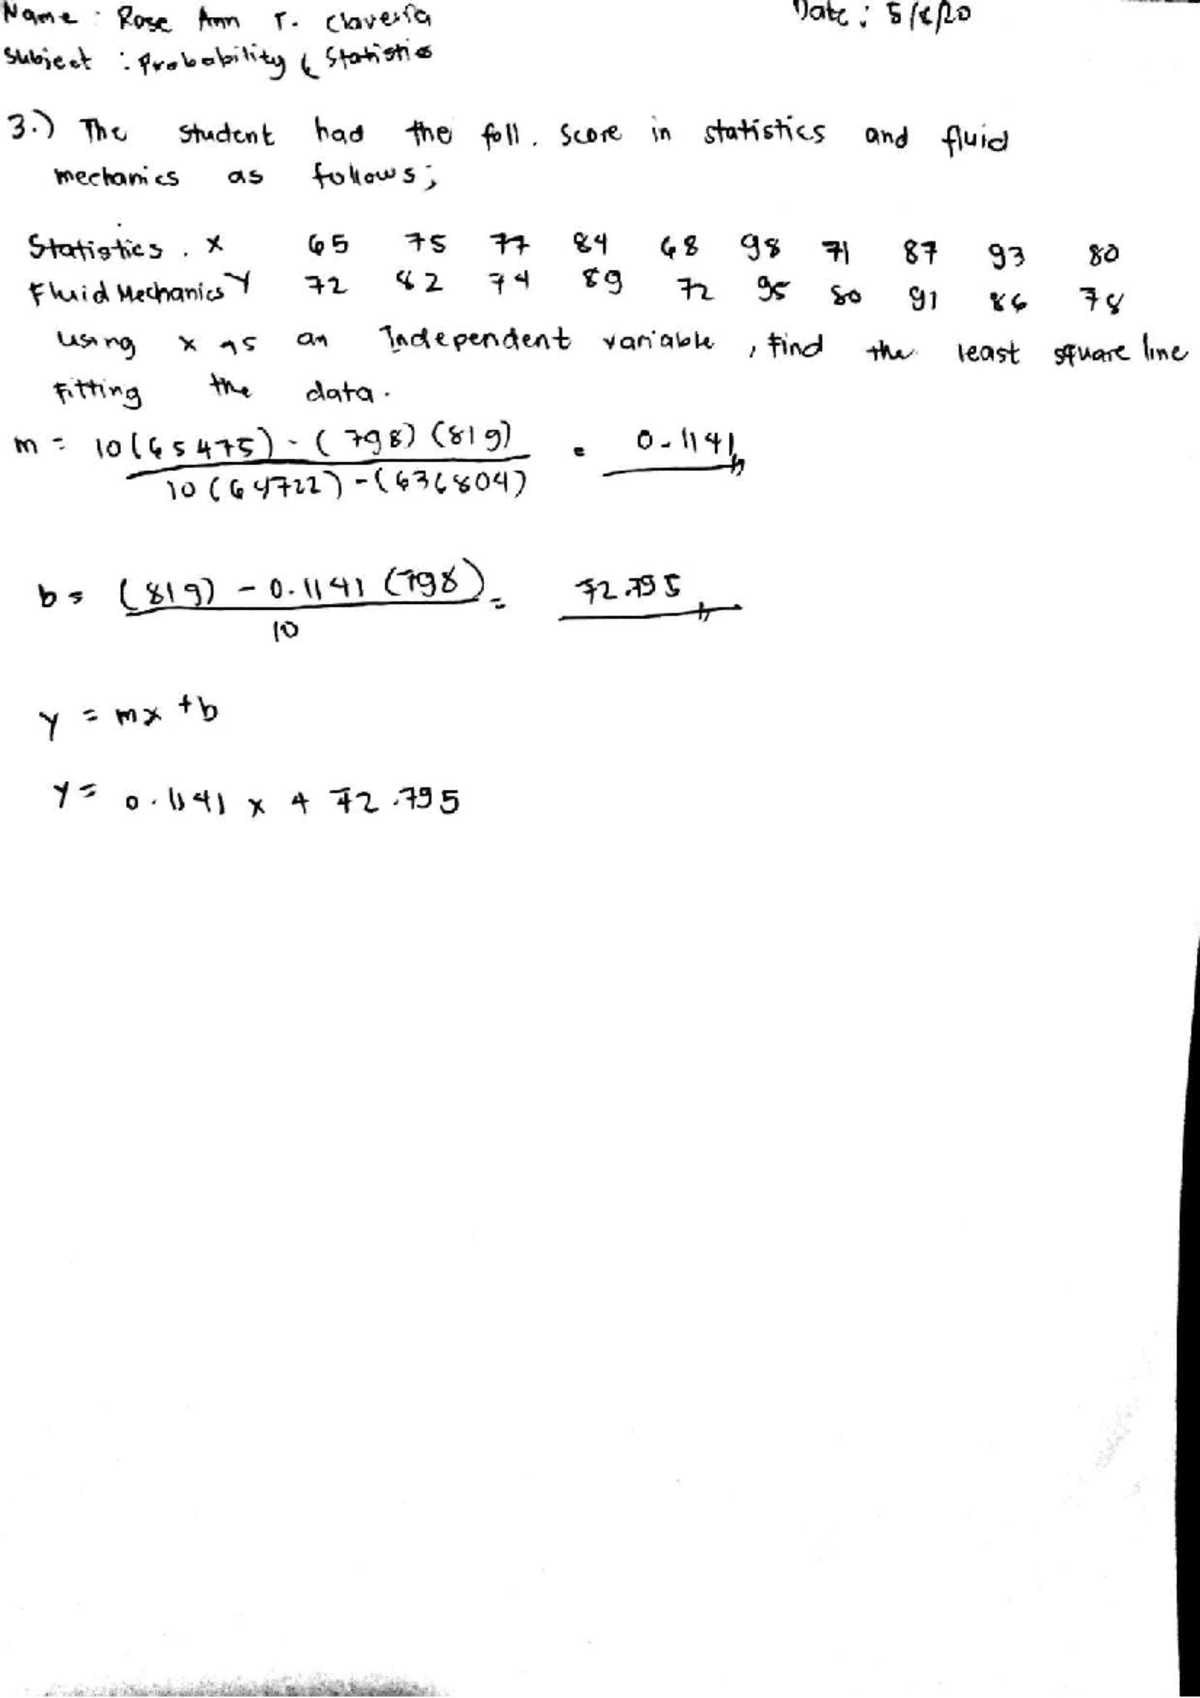 Name : Rose Ann T. Claveria Date : 5/6/20
Subject : Probability & Statistics
3.) The student had the foll. score in statistics and fluid
mechanics as follows;
Statistics . x 65 75 77 84 68 98 71 87 93 80
Fluid Mechanics Y 72 82 74 89 72 95 80 91 86 78
using x as an Independent variable , find the least square line
Fitting the data.
m = 10(65475) - (798)(819) = 0.1141
10(64722) - (636804)
b = (819) - 0.1141 (798) = 72.795
10
y = mx + b
y = 0.1141 x + 72.795